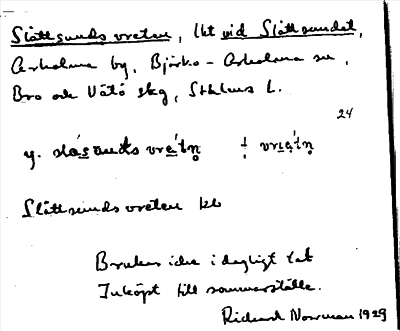 Slåttsundsvreten, lht vid Slåttsundet,
Arholma by, Björkö-Arholma sn,
Bro och Vätö skg, Sthlms l.
24
Slåttsundsvreten
Brukas icke i dagligt tal
Inköpt till sommarställe.
Richard Norrman 1929